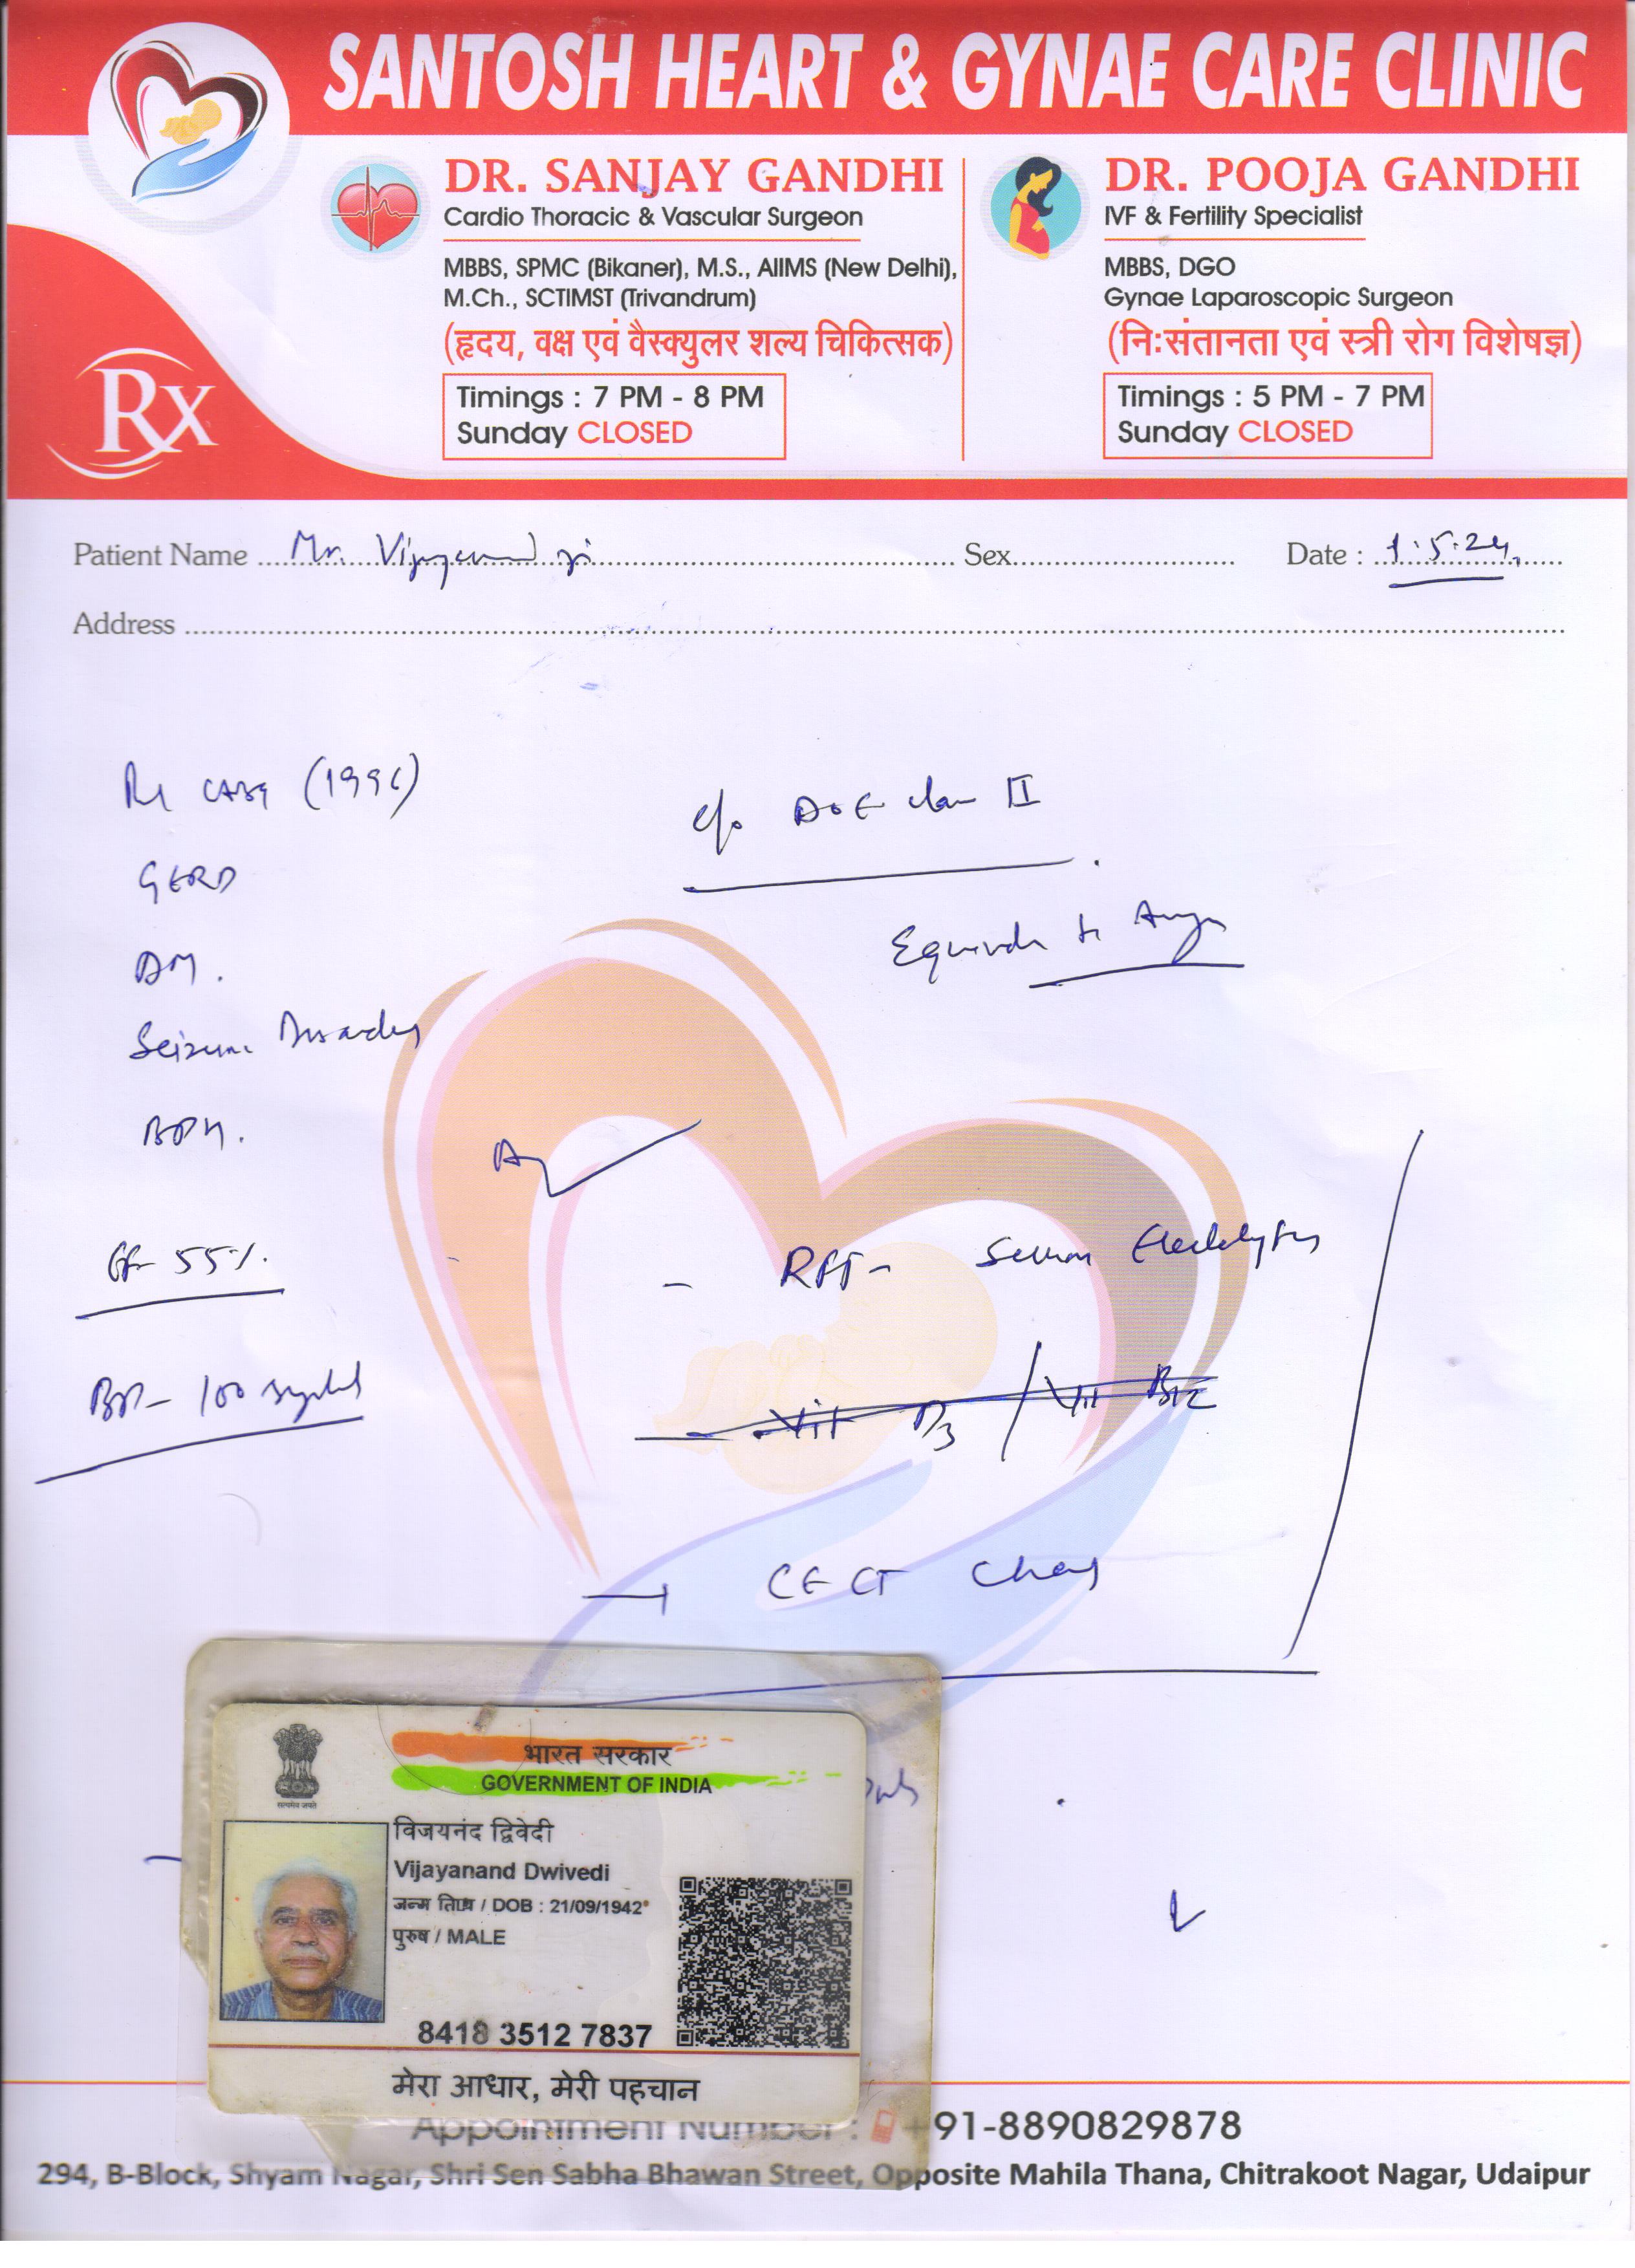 SANTOSH HEART & GYNAE CARE CLINIC
DR. SANJAY GANDHI
Cardio Thoracic & Vascular Surgeon
MBBS, SPMC (Bikaner), M.S., AIIMS (New Delhi),
M.Ch., SCTIMST (Trivandrum)
(हृदय, वक्ष एवं वैस्क्युलर शल्य चिकित्सक)
Timings : 7 PM - 8 PM
Sunday CLOSED
DR. POOJA GANDHI
IVF & Fertility Specialist
MBBS, DGO
Gynae Laparoscopic Surgeon
(नि:संतानता एवं स्त्री रोग विशेषज्ञ)
Timings : 5 PM - 7 PM
Sunday CLOSED
Rx
Patient Name Mr. Vijayanand ji Sex Date : 1.5.24
Address
CABG (1996)
c/o DOE class II
GERD
Equivalent to Angina
DM.
Seizure Disorder
BPH.
EF- 55%.
- RFT- Serum Electrolytes
BP- 100 systolic
Vit D3 / Vit B12
CECT Chest
भारत सरकार
GOVERNMENT OF INDIA
सत्यमेव जयते
विजयनंद द्विवेदी
Vijayanand Dwivedi
जन्म तिथि / DOB : 21/09/1942
पुरुष / MALE
8418 3512 7837
मेरा आधार, मेरी पहचान
Appointment Number : +91-8890829878
294, B-Block, Shyam Nagar, Shri Sen Sabha Bhawan Street, Opposite Mahila Thana, Chitrakoot Nagar, Udaipur